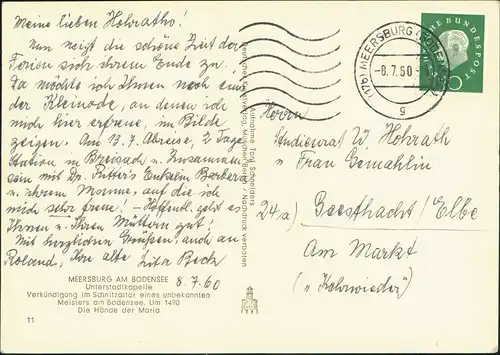 Meine lieben Hohraths!
Nun neigt die schöne Zeit der
Ferien sich ihrem Ende zu.
Da möchte ich Ihnen noch eins
der Kleinode, an denen ich
mich hier erfreue, im Bilde
zeigen. Am 13.7. Abreise, 2 Tage
Station in Breisach u. Zusammen-
sein mit Dr. Ritter's Enkelin Barbara
u. ihrem Manne, auf die ich
mich sehr freue! - Hoffentl. geht es
Ihnen u. Ihren Müttern gut!
Mit herzlichen Grüßen, auch an
Roland, Ihre alte
8.7.60
MEERSBURG AM BODENSEE
Unterstadtkapelle
Verkündigung im Schnitzaltar eines unbekannten
Meisters am Bodensee. Um 1490
Die Hände der Maria
11
Deutscher Kunstverlag, München-Berlin / Nachdruck verboten
DEUTSCHE BUNDESPOST
10
(17b) MEERSBURG (BODENSEE)
-8.7.60-
g
Herrn
Studienrat W. Hohrath
u. Frau Gemahlin
24a) Geesthacht/Elbe
Am Markt
(u. Kehrwieder)